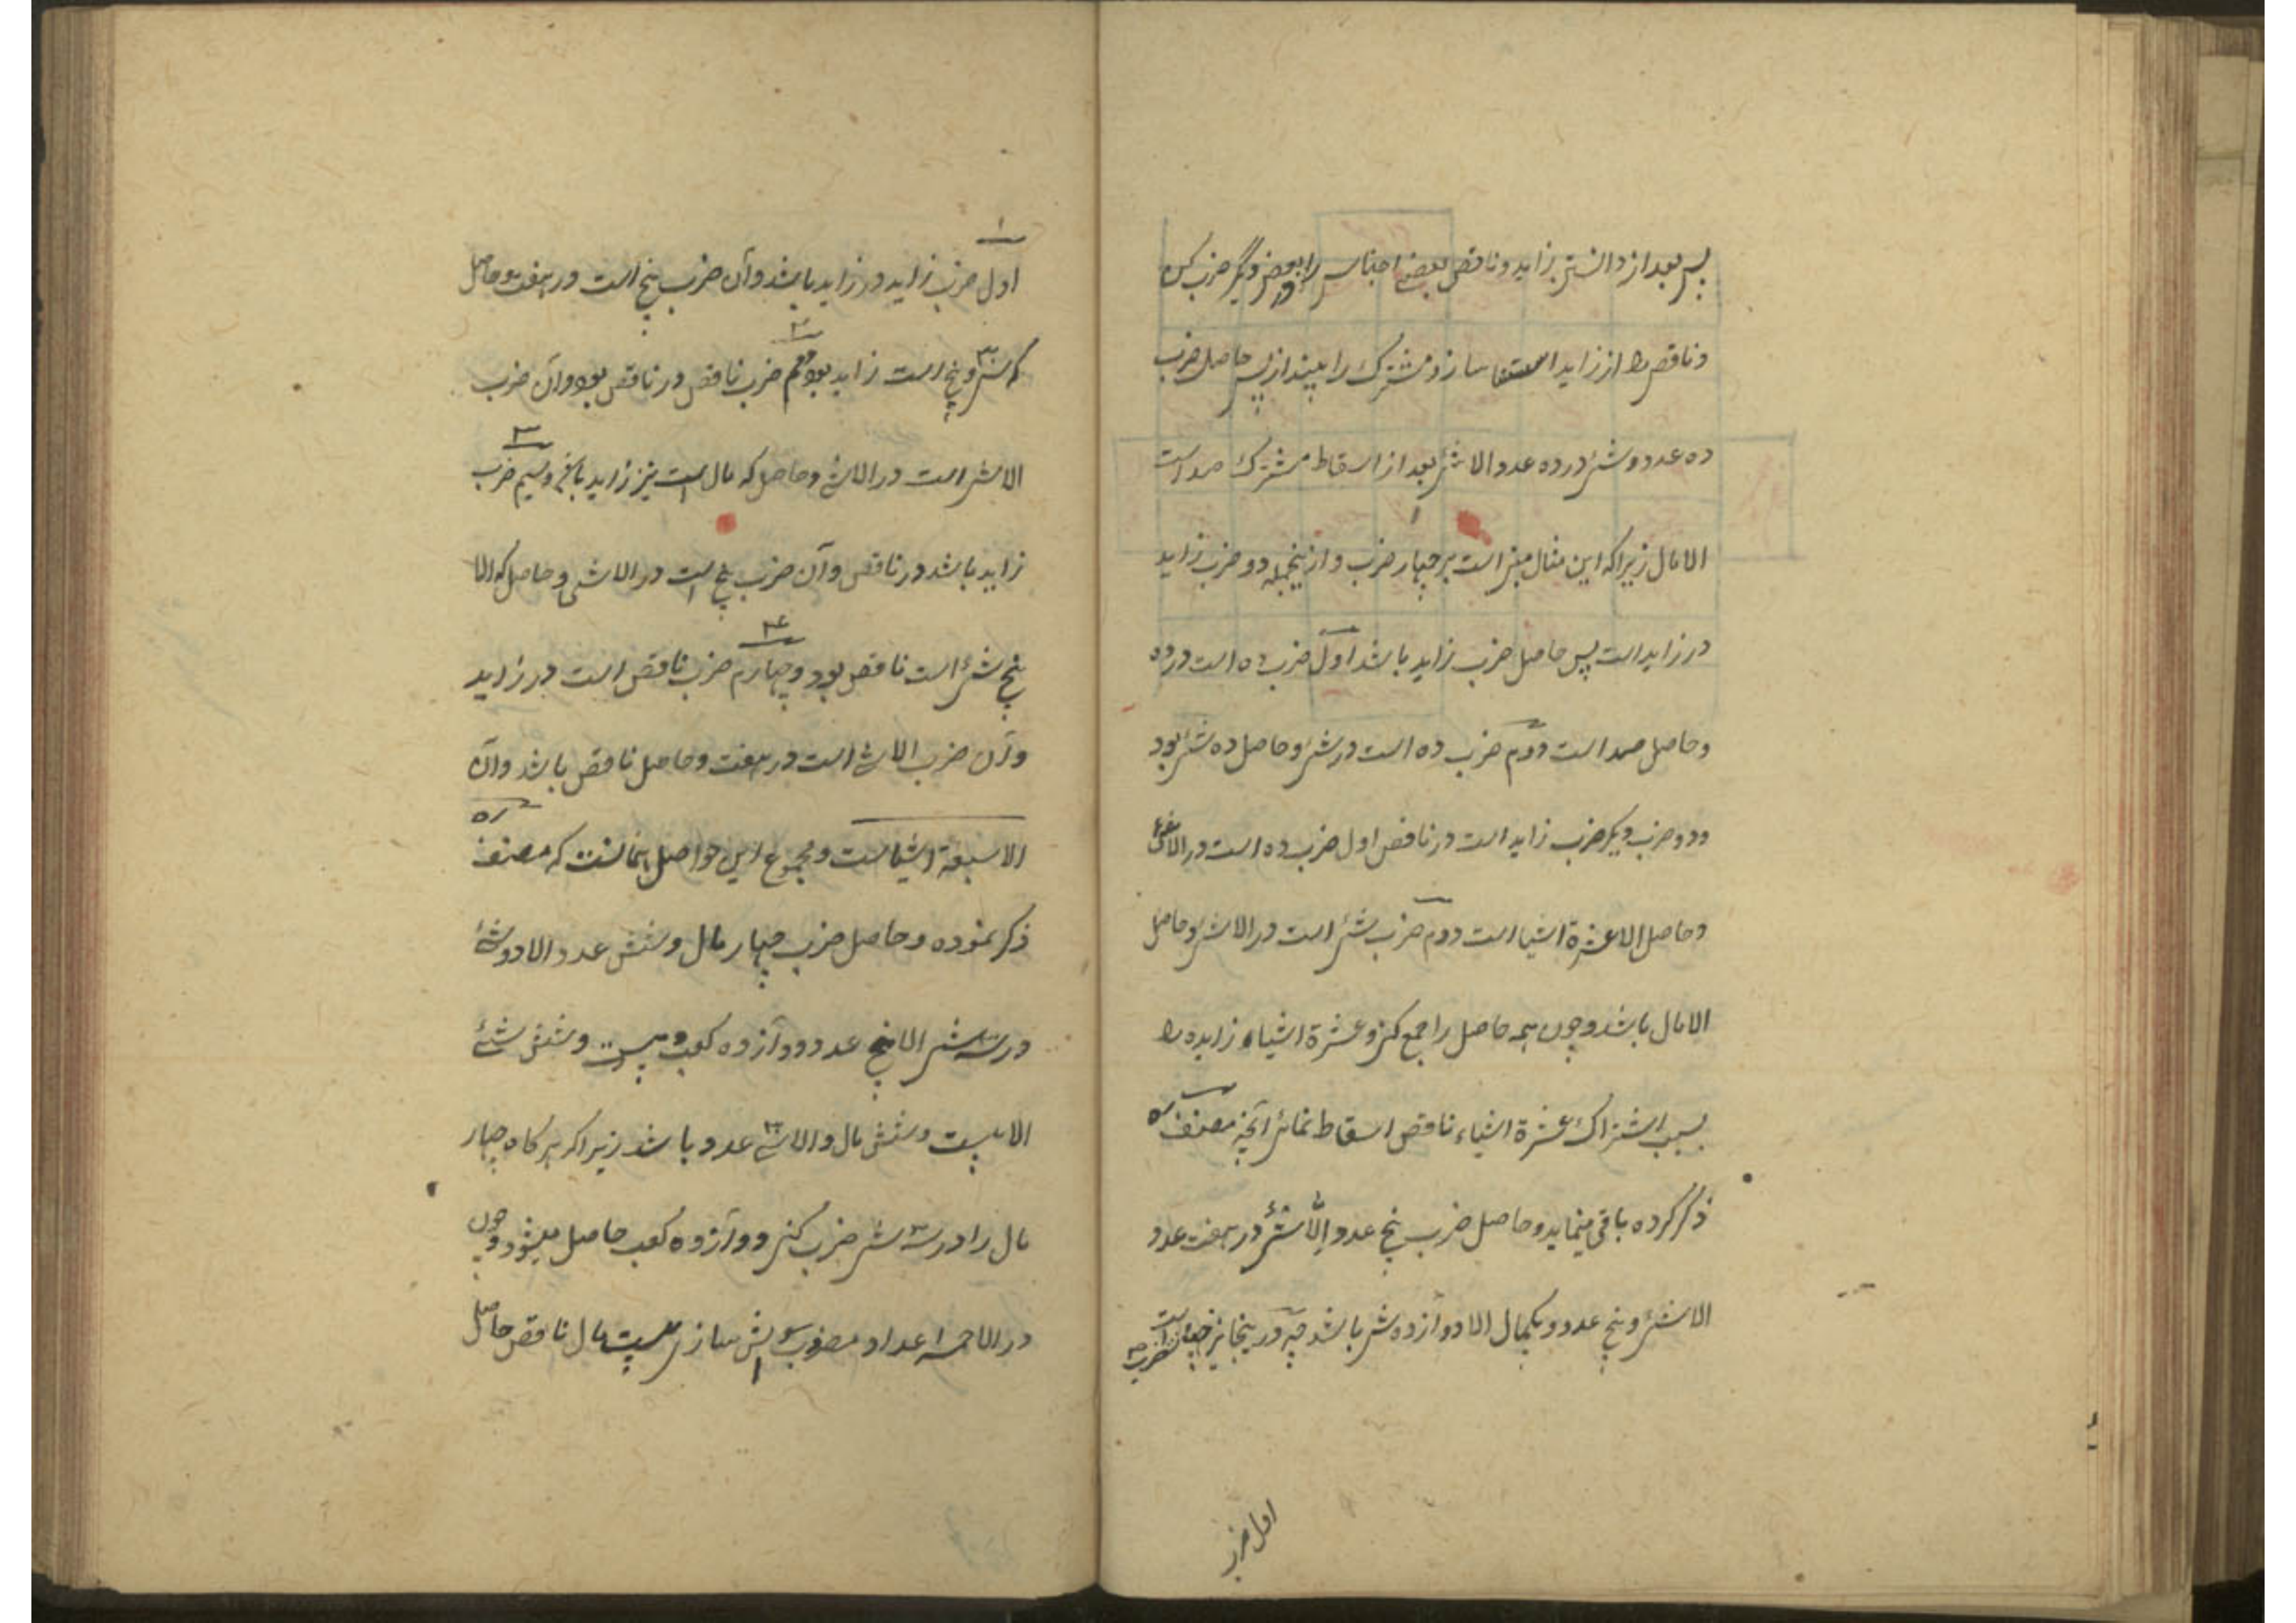 پس بعد از دانستن زاید و ناقص بعضے اجناس را در بعض دیگر ضرب کن
و ناقص را از زاید استثنا ساز و مشترک را بینداز پس حاصل ضرب
ده عدد و شئ در ده عدد الا شئ بعد از اسقاط مشترک صد است
الا مال زیرا که این مثال مبنے است بر چهار ضرب و ازینجمله دو ضرب زاید
در زاید است پس حاصل ضرب زاید باشد اول ضرب ده است در ده
و حاصل صد است دوم ضرب ده است در شئ و حاصل ده شئ بود
و دو ضرب دیگر ضرب زاید است در ناقص اول ضرب ده است در الا شئ
و حاصل الا عشرة اشیا است دوم ضرب شئ است در الا شئ و حاصل
الا مال باشد و چون همه حاصل را جمع کنے و عشرة اشیاء زایده را
بسبب اشتراک عشرة اشیاء ناقص اسقاط نمائے آنچه مصنف ره
ذکر کرده باقی میماند و حاصل ضرب پنج عدد إلّا شئ در هفت عدد
الا شئ و پنج عدد و یکمال الا دوازده شئ باشد چه درینجا نیز چهار ضرب است
اول ضرب
۱
اول ضرب زاید در زاید باشد و آن ضرب پنج است در هفت و حاصل
که سی و پنج است زاید بود دویم ضرب ناقص در ناقص بود و آن ضرب
۲
الا شئ است در الا شئ و حاصل که مال است نیز زاید باشد و سیم ضرب
۳
زاید باشد در ناقص و آن ضرب پنج است در الا شئ و حاصل که الا
پنج شئ است ناقص بود و چهارم ضرب ناقص است در زاید
۴
و آن ضرب الا شئ است در هفت و حاصل ناقص باشد و آن
الا سبعة اشیاست و مجموع این حواصل همانست که مصنف ره
ذکر نموده و حاصل ضرب چهار مال و شش عدد الا دو شئ
در سه شئ الا پنج عدد دوازده کعب و بیست و شش شئ
الا بیست و شش مال و الا سی عدد باشد زیرا که هر گاه چهار
مال را در سه شئ ضرب کنی دوازده کعب حاصل میشود و چون
در الا خمسه اعداد مضروبش سازی بیست مال ناقص حاصل